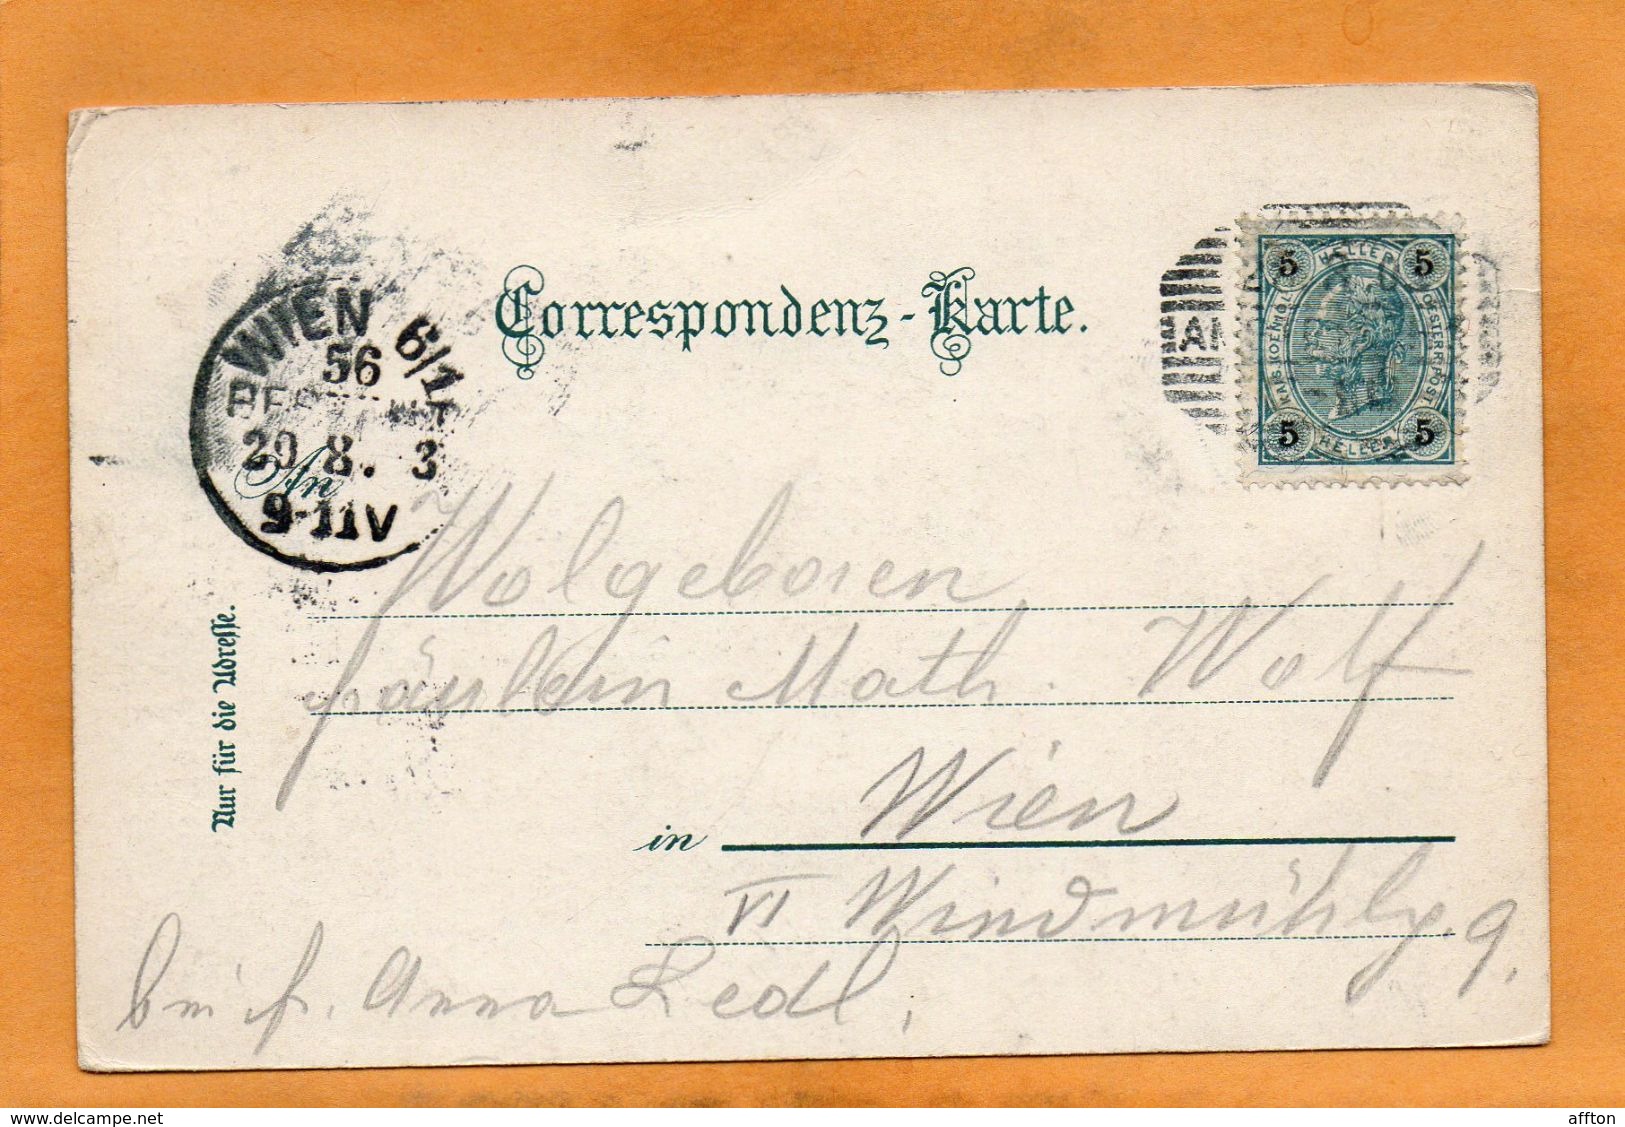 Correspondenz-Karte.
WIEN 6/1
56
20 8. 3
9-11V
5 HELLER 5
KAIS. KOENIGL. OESTERR. POST
5 HELLER 5
An
Wolgeboren
fräulein Math. Wolf
in Wien
VI Windmühlg. 9.
bei f. Anna Ledl,
Nur für die Adresse.
delcampe.net
affton